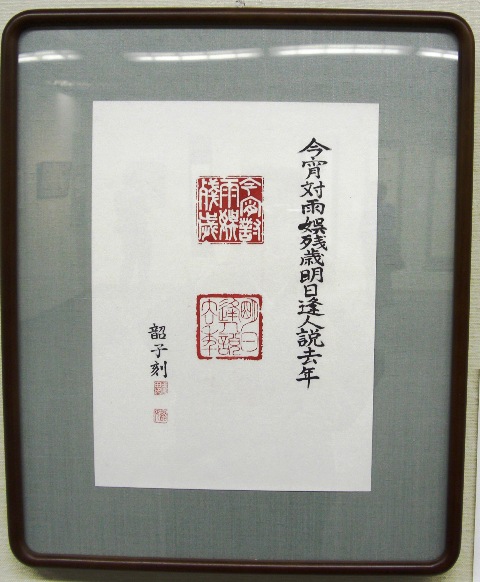 今宵対雨娯残歳明日逢人説去年
今宵對雨娯残歳
明日逢人説去年
韶子刻